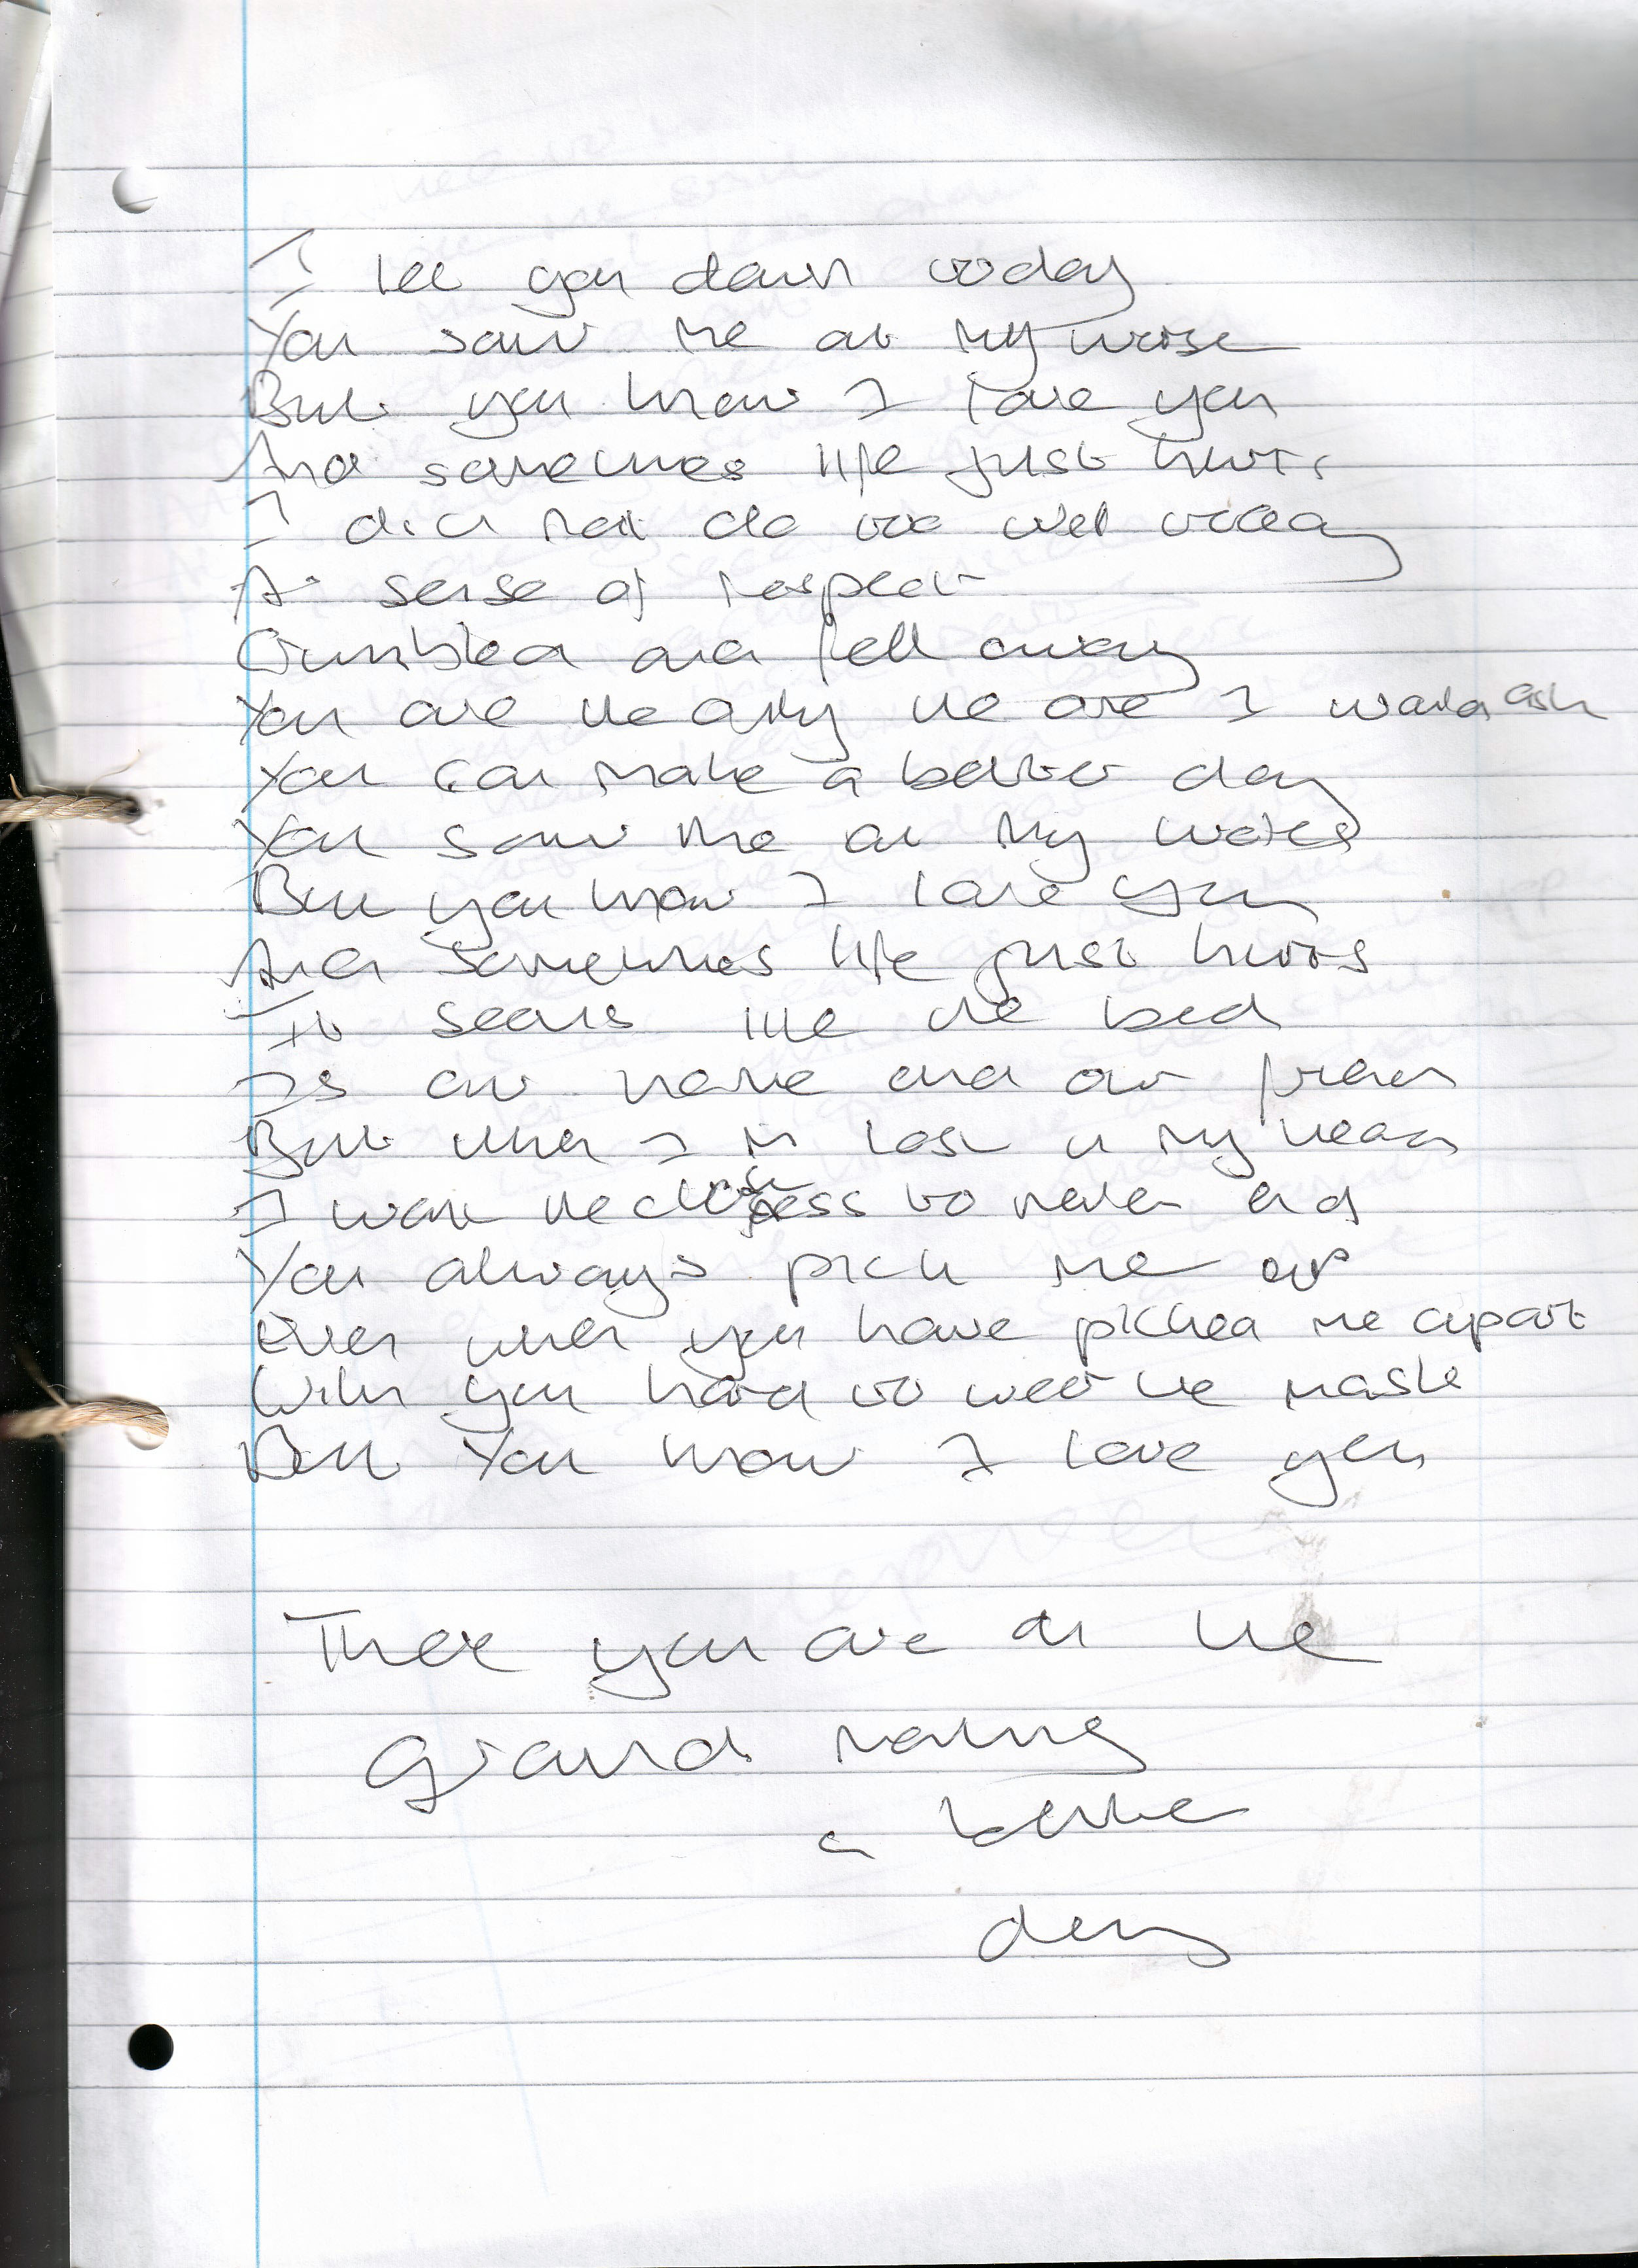 I let you down today
You saw me at my worse
But you know I love you
And sometimes life just hurts
I did not do too well today
A sense of respect
Crumbled and fell away
You are the only the one I would ask
You can make a better day
You saw me at my worse
But you know I love you
And sometimes life just hurts
It seems like the bed
Is our home and our friend
But when I m lost in my head
I want the to never end
You always pick me up
Even when you have picked me apart
With you hand to the mask
But you know I love you
There you are on the
grand
a better
day